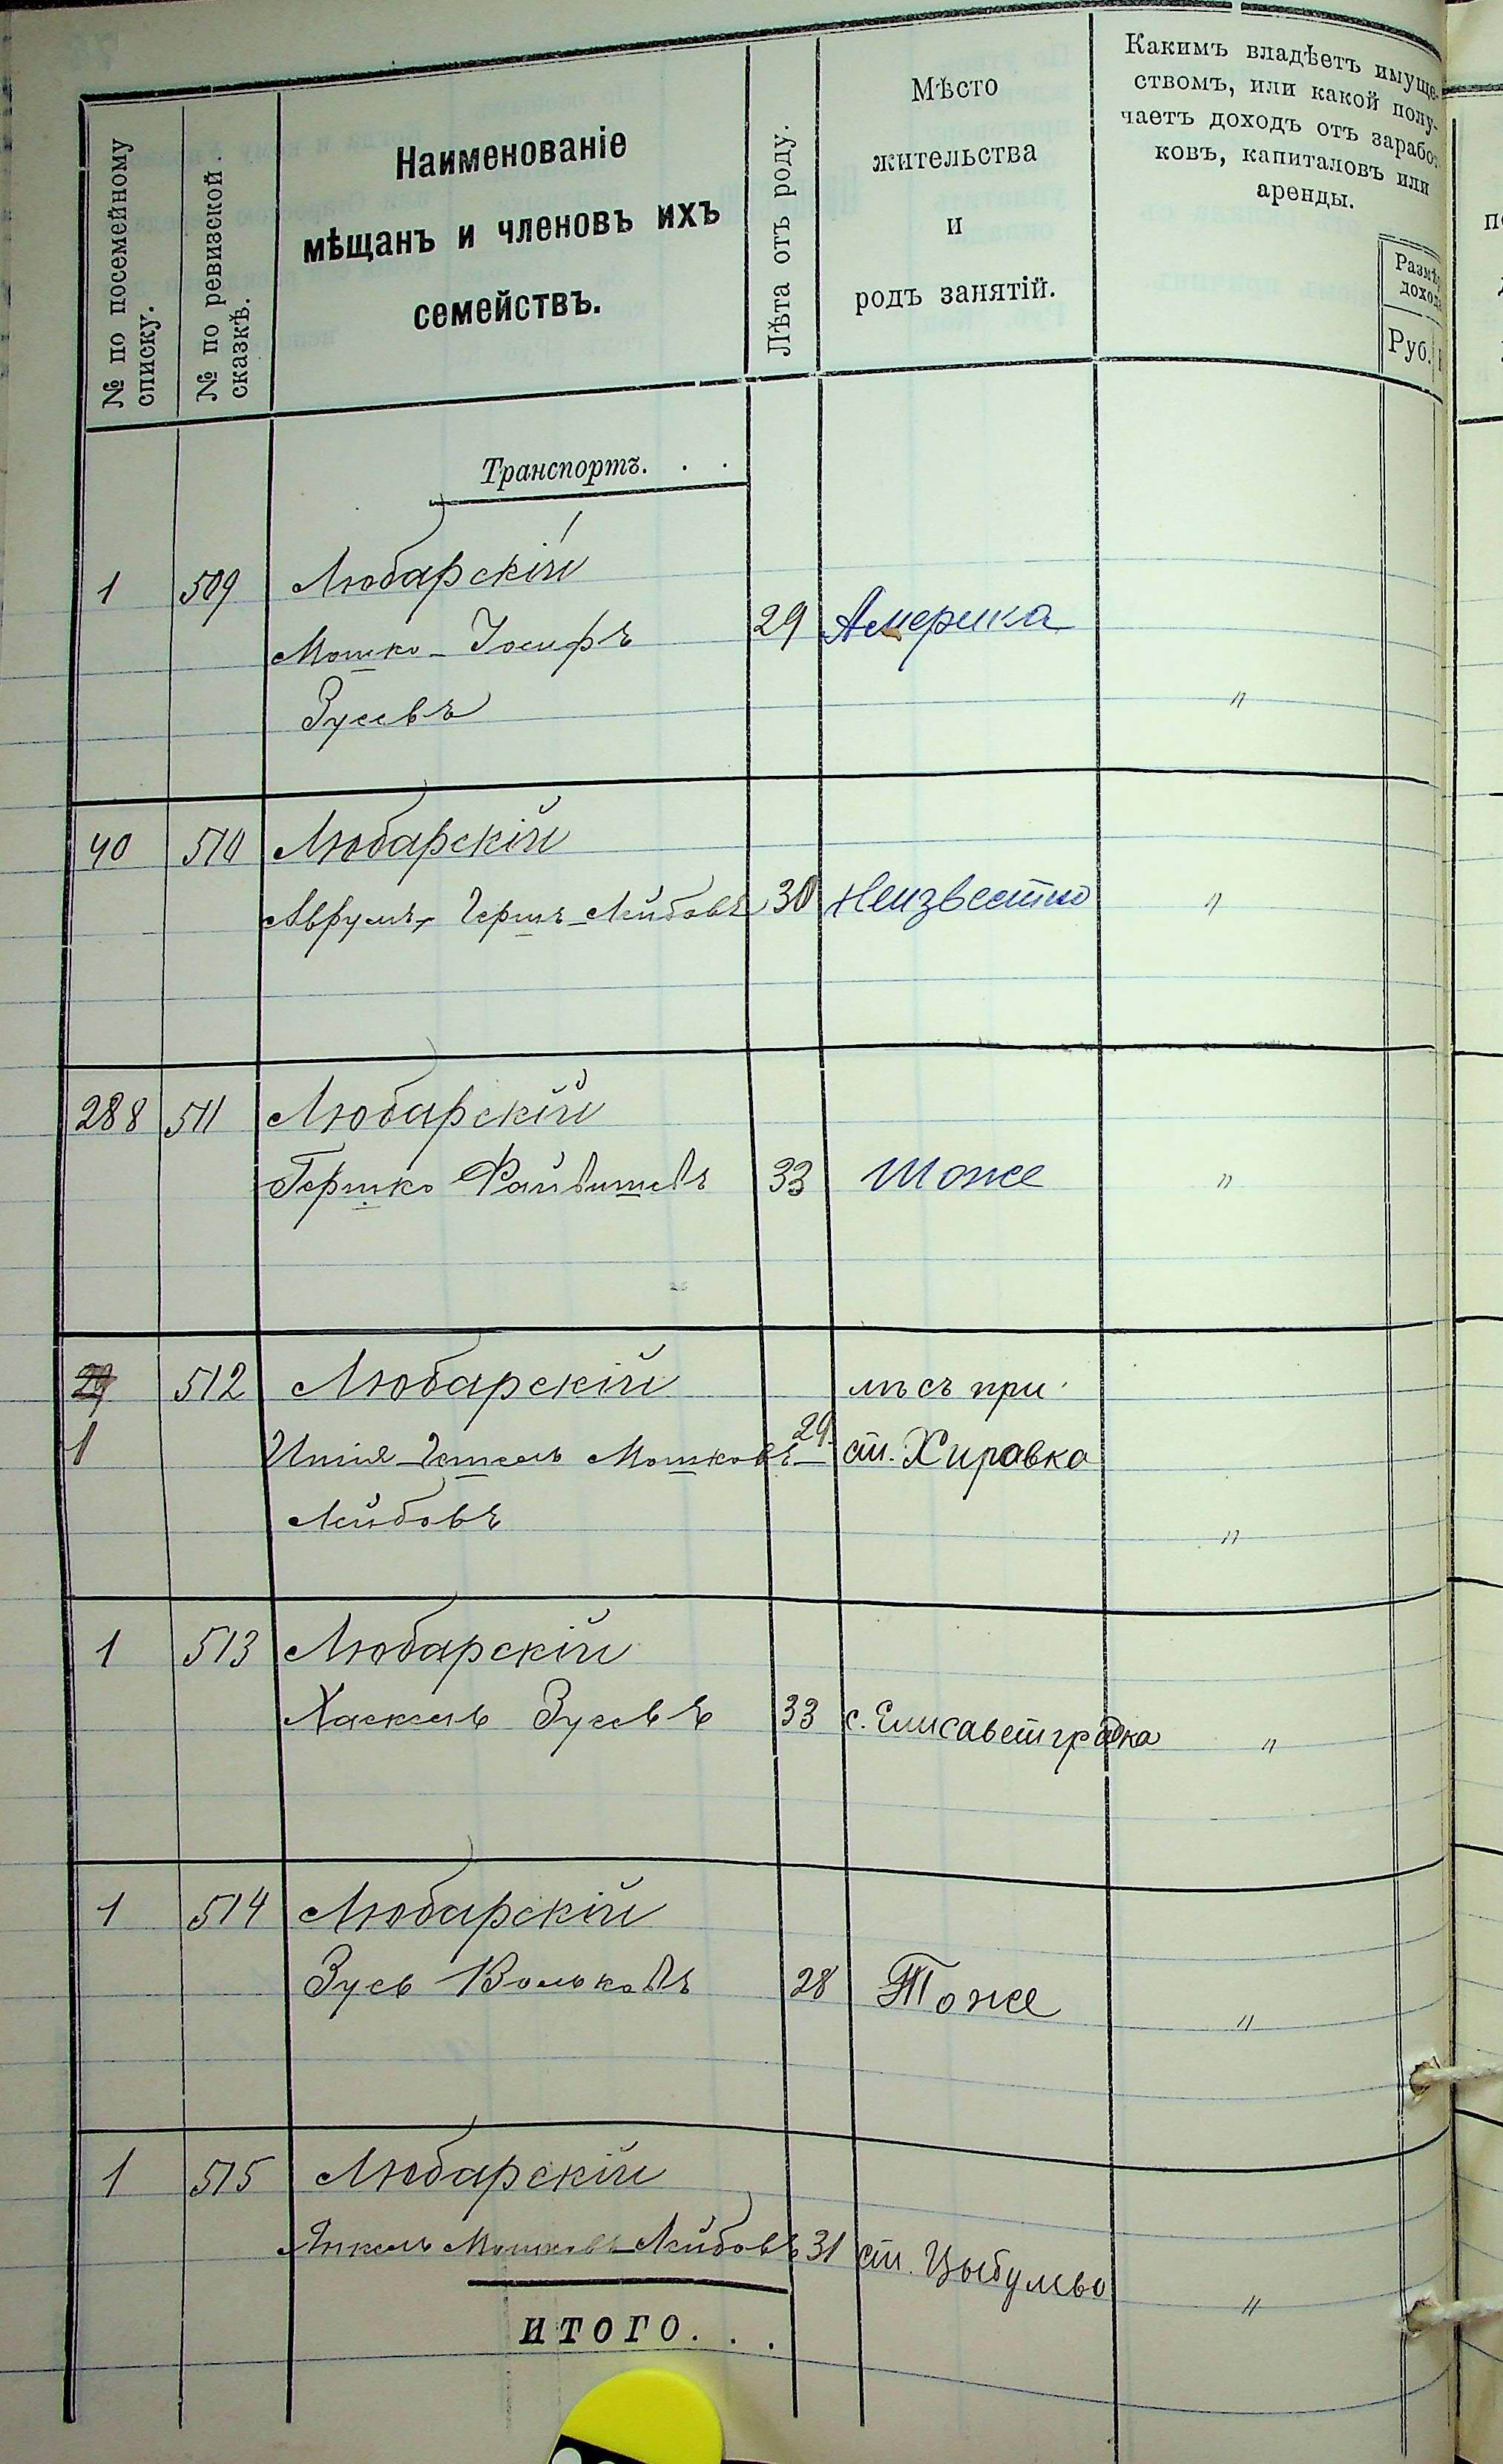 № по посемейному
списку.
№ по ревизской
сказкѣ.
Наименованіе
мѣщанъ и членовъ ихъ
семействъ.
Лѣта отъ роду.
Мѣсто
жительства
и
родъ занятій.
Какимъ владѣетъ имуще-
ствомъ, или какой полу-
чаетъ доходъ отъ заработ
ковъ, капиталовъ или
аренды.
Размѣ
доход
Руб.
Транспортъ. . .
1 509 Любарскій
Мошко-Іосифъ 29 Америка
Зусевъ "
40 510 Любарскій
Аврумъ-Гершъ-Лейбовъ 30 Неизвестно "
288 511 Любарскій
Гершко Файвишевъ 33 Тоже "
29 512 Любарскій лѣсъ при
1 Мошковъ- 29 ст. Хировка
Лейбовъ "
1 513 Любарскій
Хаскель Зусевъ 33 с. Елисаветградка "
1 514 Любарскій
Зусь Вольковъ 28 Тоже "
1 515 Любарскій
Янкель Мошковъ-Лейбовъ 31 ст. Цыбулево "
ИТОГО. . .